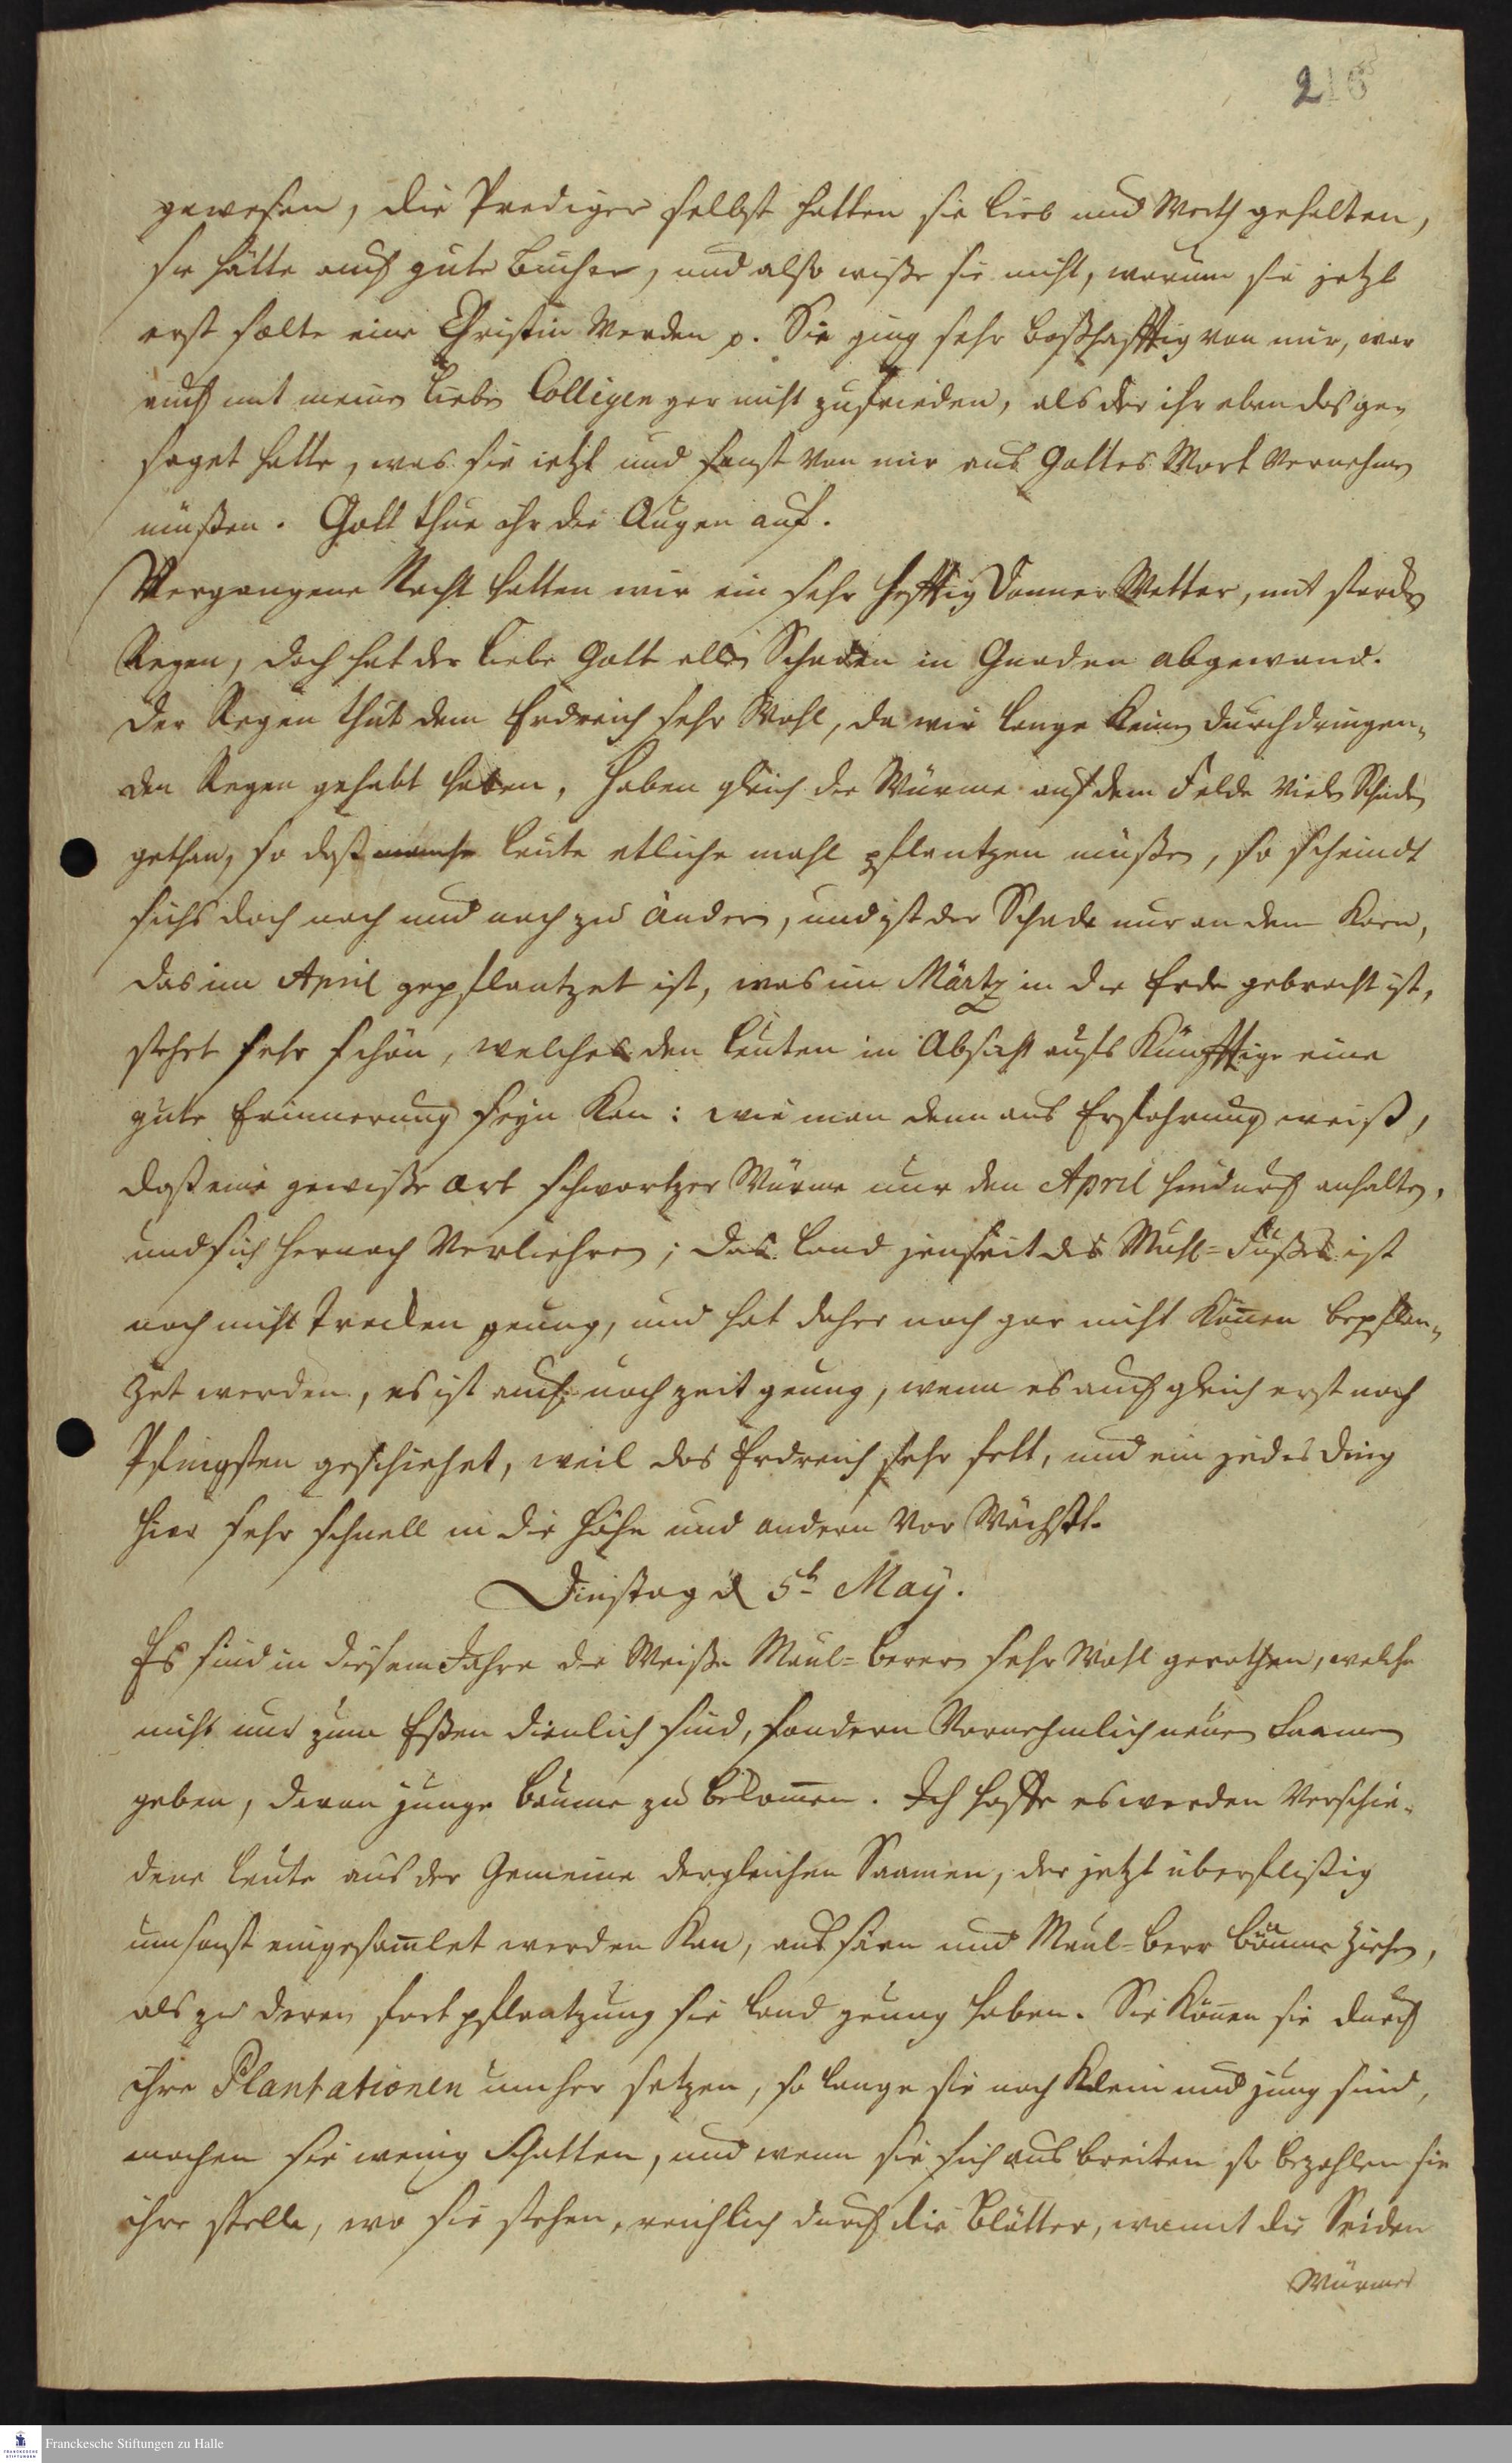 216
gewesen, die Prediger selbst hatten sie lieb und Werth gehalten,
sie hätte auch gute Bücher, und also wiße sie nicht, warum sie jetzt
erst solte eine Christin Werden p. Sie ging sehr boßhafftig von mir, war
auch mit meinen lieben Collegen gar nicht zufrieden, als der ihr eben das ge„
saget hatte, was sie ietzt und sonst von mir aus Gottes Wort Vernehmen
müßen. Gott thue ihr die Augen auf.
Vergangene Nacht hatten wir ein sehr hefftig Donner Wetter, mit starcken
Regen, doch hat der liebe Gott allen Schaden in Gnaden abgewand.
Der Regen thut dem Erdreich sehr Wohl, da wir lange Keinen durchdringen„
den Regen gehabt haben, Haben gleich die Würme auf dem Felde Vielen Schaden
gethan, so daß manche Leute etliche mahl pflantzen müßen, so scheindt
sichs doch nach und nach zu ändern, und ist der Schade nur an dem Korn,
das im April gepflantzet ist, was im Märtz in die Erde gebracht ist,
stehet sehr schön, welches den Leuten in Absicht aufs Künfftige eine
gute Erinnerung seyn Kan: wie man denn aus Erfahrung weiß,
daß eine gewiße Art schwartzer Würme nur den April hindurch anhalten,
und sich hernach Verliehren; das Land jenseit des Muhl=Flußes ist
noch nicht Trocken genug, und hat daher noch gar nicht Könen bepflan„
Zet werden, es ist auch noch zeit genug, wenn es auch gleich erst nach
Pfingsten geschiehet, weil das Erdreich sehr fett, und ein jedes Ding
hier sehr schnell in die Höhe und andern Vor Wächßt.
Dienstag d 5t May.
Es sind in diesem Jahre die Weiße Maul=beren sehr Wohl gerathen, welche
nicht nur zum Eßen dienlich sind, sondern Vornehmlich neuen Saamen
geben, davon junge Bäume zu bekomen. Ich hoffe es werden Verschie„
dene Leute aus der Gemeine dergleichen Saamen, der jetzt überflißig
umsonst eingesamlet werden Kan, aus säen und Maul=beer Bäume Ziehen,
als zu deren fort pflantzung sie Land genug haben. Sie Könen sie durch
ihre Plantationen umher setzen, so lange sie noch Klein und jung sind,
machen sie wenig Schatten, und wenn sie sich aus breiten so bezahlen sie
ihre stelle, wo sie stehen, reichlich durch die Blätter, womit die Seiden
Würmer
Franckesche Stiftungen zu Halle